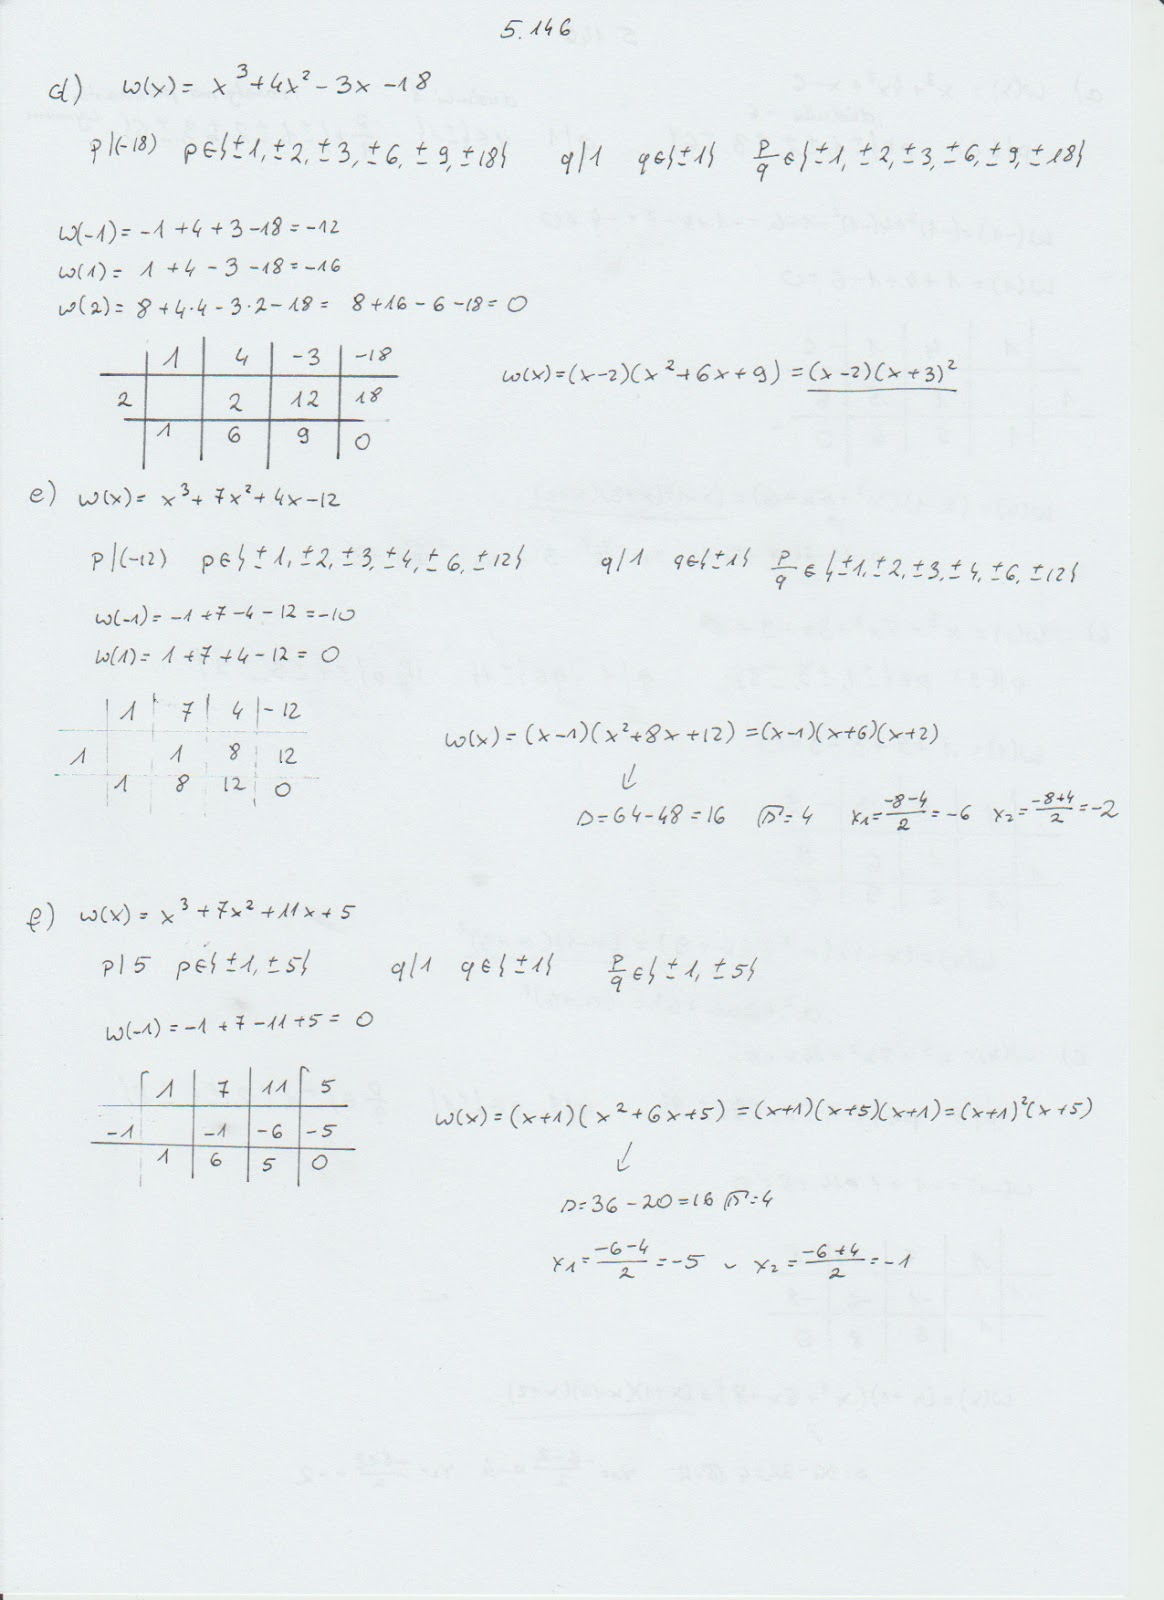 5.146
d) w(x) = x³ + 4x² - 3x - 18
p|(-18) p∈{±1, ±2, ±3, ±6, ±9, ±18} q|1 q∈{±1} p/q ∈{±1, ±2, ±3, ±6, ±9, ±18}
w(-1) = -1 + 4 + 3 - 18 = -12
w(1) = 1 + 4 - 3 - 18 = -16
w(2) = 8 + 4·4 - 3·2 - 18 = 8 + 16 - 6 - 18 = 0
1 4 -3 -18
2 2 12 18
1 6 9 0
w(x) = (x-2)(x² + 6x + 9) = (x-2)(x+3)²
e) w(x) = x³ + 7x² + 4x - 12
p|(-12) p∈{±1, ±2, ±3, ±4, ±6, ±12} q|1 q∈{±1} p/q ∈{±1, ±2, ±3, ±4, ±6, ±12}
w(-1) = -1 + 7 - 4 - 12 = -10
w(1) = 1 + 7 + 4 - 12 = 0
1 7 4 -12
1 1 8 12
1 8 12 0
w(x) = (x-1)(x² + 8x + 12) = (x-1)(x+6)(x+2)
↓
Δ = 64 - 48 = 16 √Δ = 4 x₁ = (-8-4)/2 = -6 x₂ = (-8+4)/2 = -2
f) w(x) = x³ + 7x² + 11x + 5
p|5 p∈{±1, ±5} q|1 q∈{±1} p/q ∈{±1, ±5}
w(-1) = -1 + 7 - 11 + 5 = 0
1 7 11 5
-1 -1 -6 -5
1 6 5 0
w(x) = (x+1)(x² + 6x + 5) = (x+1)(x+5)(x+1) = (x+1)²(x+5)
↓
Δ = 36 - 20 = 16 √Δ = 4
x₁ = (-6-4)/2 = -5 ∨ x₂ = (-6+4)/2 = -1